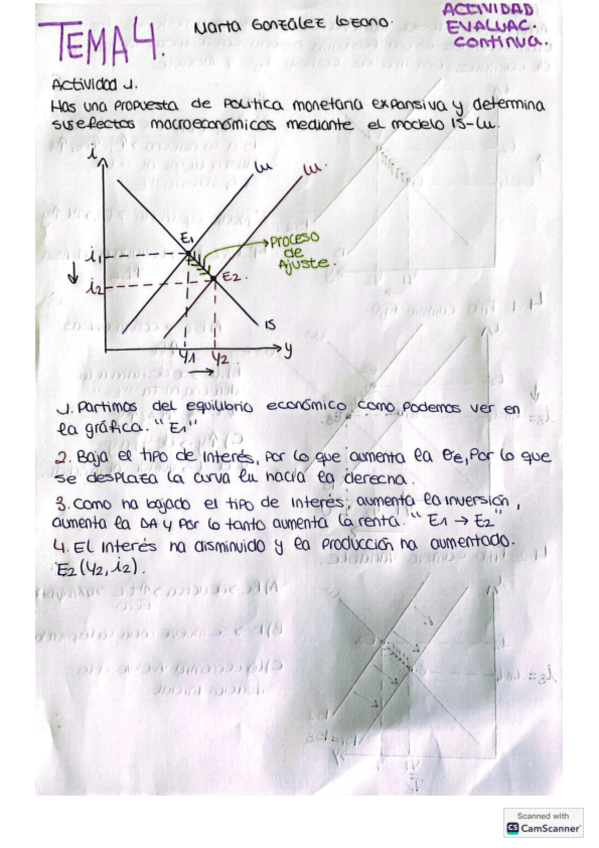 TEMA 4.
Marta González Lozano.
ACTIVIDAD
EVALUAC.
Continua.
Actividad 1.
Has una propuesta de política monetaria expansiva y determina
sus efectos macroeconómicos mediante el modelo IS-LM.
i
LM
LM'
E1
Proceso
de
Ajuste.
i1
E2.
i2
IS
Y1
Y2
y
1. Partimos del equilibrio económico, como podemos ver en
la gráfica. "E1"
2. Baja el tipo de interés, por lo que aumenta la , por lo que
se desplaza la curva LM hacia la derecha.
3. Como ha bajado el tipo de interés, aumenta la inversión,
aumenta la DA y por lo tanto aumenta la renta. "E1 → E2"
4. El interés ha disminuido y la producción ha aumentado.
E2 (Y2, i2).
Scanned with
CS CamScanner